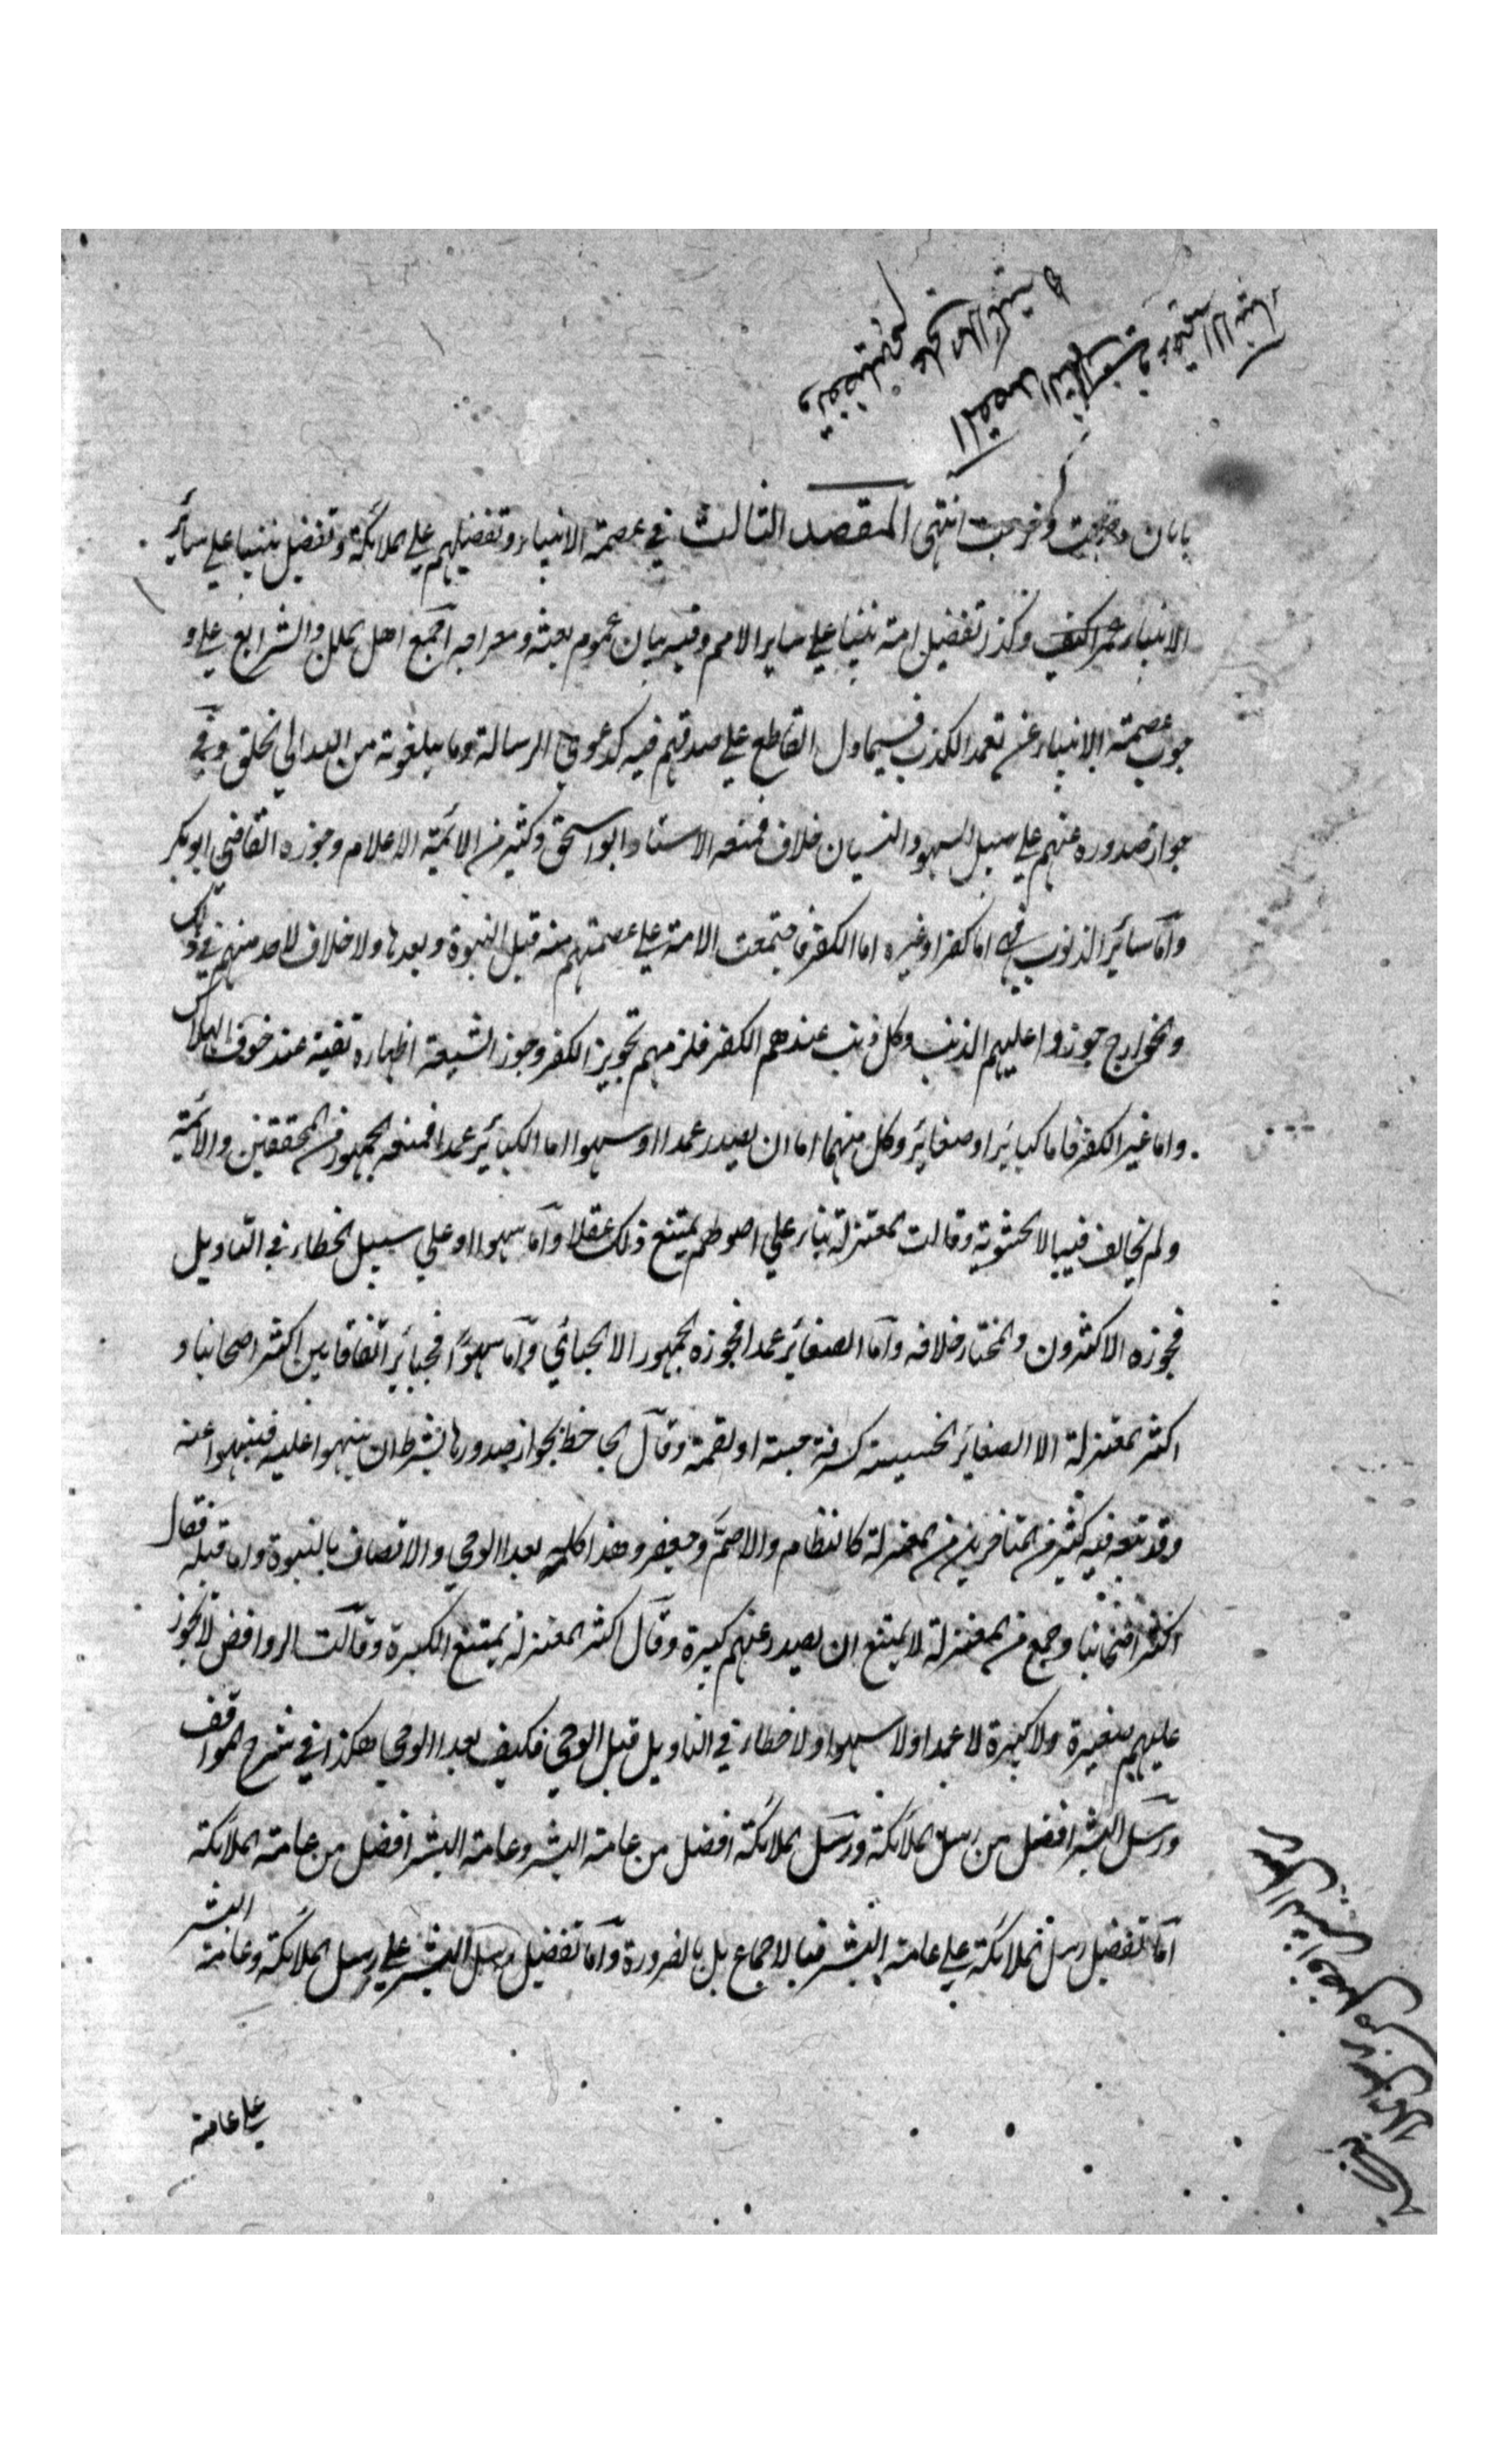 المقصد الثالث في عصمة الانبياء
وتفضيلهم على الملائكة
بابان وخرجت انتهى المقصد الثالث في عصمة الانبياء وتفضيلهم علي الملائكة وتفضيل نبينا علي سائر
الانبياء وكذا تفضيل امة نبينا علي ساير الامم وفيه بيان عموم بعثه ومعراجه اجمع اهل الملل والشرايع علي و
جوب عصمة الانبياء عن تعمد الكذب فيما دل القاطع علي صدقهم فيه كدعوي الرسالة وما يبلغونه من الله الي الخلق وفي
جواز صدوره عنهم علي سبيل السهو والنسيان خلاف فمنعه الاستاد ابو اسحق وكثير من الائمة الاعلام وجوزه القاضي ابو بكر
وآما سائر الذنوب فهي اما كفر او غيره اما الكفر فاجتمعت الامة علي عصمتهم منه قبل النبوة وبعدها ولا خلاف لاحد منهم في ذلك
والخوارج جوزوا عليهم الذنب وكل ذنب عندهم الكفر فلزمهم تجويز الكفر وجوز الشيعة اظهاره تقية عند خوف الهلاك
واما غير الكفر فاما كبائر او صغائر وكل منهما اما ان يصدر عمدا او سهوا اما الكبائر عمدا فمنعه الجمهور من المحققين والائمة
ولم يخالف فيه الا الحشوية وقالت المعتزلة بناء علي اصولهم يمتنع ذلك عقلا وآما سهوا او علي سبيل الخطاء في التاويل
فجوزه الاكثرون والمختار خلافه وآما الصغائر عمدا فجوزه الجمهور الا الجبائي وآما سهوًا فجائز اتفاقا بين اكثر اصحابنا و
اكثر المعتزلة الا الصغائر الخسيسة كسرقة حبة او لقمة وقآل الجاحظ بجواز صدورها بشرط ان ينبهوا عليه فينتهوا عنه
وقد تبعه فيه كثير من المتاخرين من المعتزلة كالنظام والاصمّ وجعفر وهذا كله بعد الوحي والاتصاف بالنبوة واما قبله فقال
اكثر اصحابنا وجمع من المعتزلة لا يمتنع ان يصدر عنهم كبيرة وقآل اكثر المعتزلة يمتنع الكبيرة وقآلت الروافض لا يجوز
عليهم صغيرة ولا كبيرة لا عمدا ولا سهوا ولا خطاء في التاويل قبل الوحي فكيف بعد الوحي هكذا في شرح المواقف
ورسل البشر افضل من رسل الملائكة ورسل الملائكة افضل من عامة البشر وعامة البشر افضل من عامة الملائكة
آما تفضيل رسل الملائكة علي عامة البشر فبالاجماع بل بالضرورة وآما تفضيل رسل البشر علي رسل الملائكة وعامة البشر
علي عامة